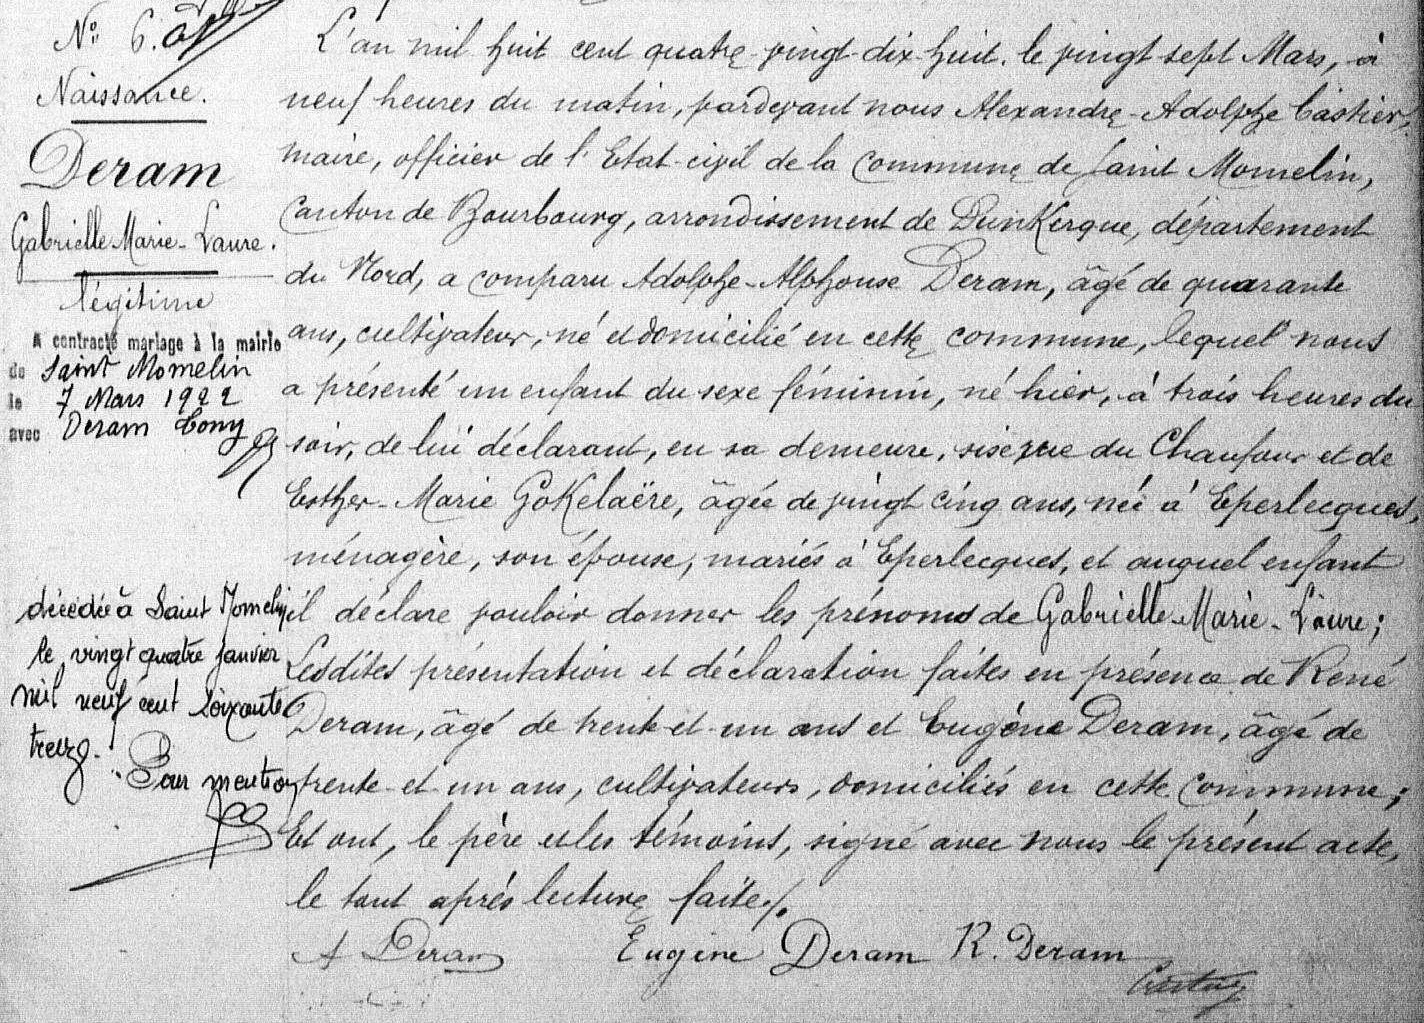 N° 6.
Naissance.
Deram
Gabrielle Marie-Laure.
légitime
A contracté mariage à la mairie
de Saint Momelin
le 7 Mars 1922
avec Deram Cony
décédée à Saint Momelin
le vingt quatre janvier
mil neuf cent soixante
treize.
Pour mention
L'an mil huit cent quatre-vingt-dix-huit, le vingt sept Mars, à
neuf heures du matin, pardevant nous Alexandre-Adolphe Castier,
maire, officier de l'Etat-civil de la commune de Saint Momelin,
Canton de Bourbourg, arrondissement de DunKerque, département
du Nord, a comparu Adolphe-Alphonse Deram, âgé de quarante
ans, cultivateur, né et domicilié en cette commune, lequel nous
a présenté un enfant du sexe féminin, né hier, à trois heures du
soir, de lui déclarant, en sa demeure, sise rue du Chaufour et de
Esther-Marie GoKelaëre, âgée de vingt cinq ans, née à Eperlecques,
ménagère, son épouse, mariés à Eperlecques, et auquel enfant
il déclare vouloir donner les prénoms de Gabrielle-Marie-Laure;
Lesdites présentation et déclaration faites en présence de René
Deram, âgé de trente-et-un ans et Eugène Deram, âgé de
trente-et-un ans, cultivateurs, domiciliés en cette commune;
Et ont, le père et les témoins, signé avec nous le présent acte,
le tout après lecture faite./.
A Deram Eugène Deram R. Deram